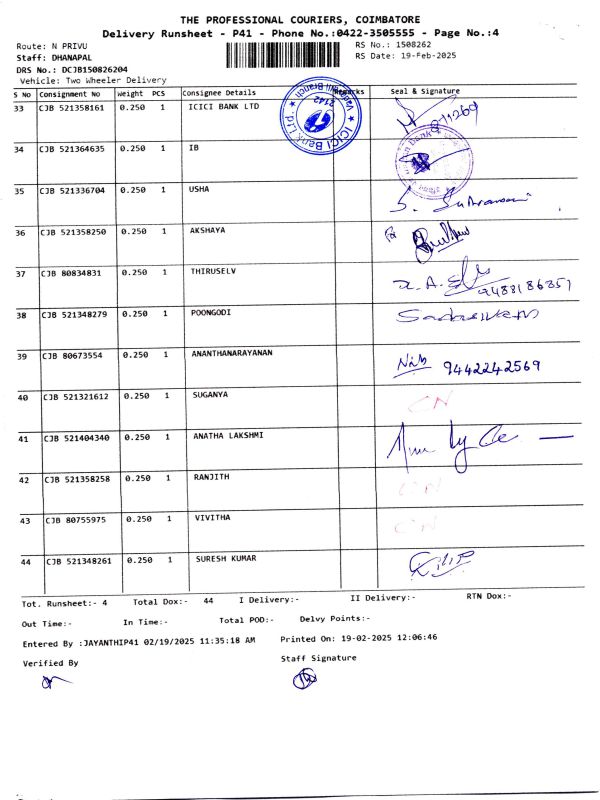 THE PROFESSIONAL COURIERS, COIMBATORE
Delivery Runsheet - P41 - Phone No.:0422-3505555 - Page No.:4
Route: N PRIVU RS No.: 1508262
Staff: DHANAPAL RS Date: 19-Feb-2025
DRS No.: DCJB150826204
Vehicle: Two Wheeler Delivery
S No Consignment No Weight PCS Consignee Details Remarks Seal & Signature
33 CJB 521358161 0.250 1 ICICI BANK LTD
ICICI Bank LTD 2142
34 CJB 521364635 0.250 1 IB
35 CJB 521336704 0.250 1 USHA
36 CJB 521358250 0.250 1 AKSHAYA
37 CJB 80834831 0.250 1 THIRUSELV
38 CJB 521348279 0.250 1 POONGODI
39 CJB 80673554 0.250 1 ANANTHANARAYANAN 9442242569
40 CJB 521321612 0.250 1 SUGANYA CN
41 CJB 521404340 0.250 1 ANATHA LAKSHMI
42 CJB 521358258 0.250 1 RANJITH CN
43 CJB 80755975 0.250 1 VIVITHA CN
44 CJB 521348261 0.250 1 SURESH KUMAR
Tot. Runsheet:- 4 Total Dox:- 44 I Delivery:- II Delivery:- RTN Dox:-
Out Time:- In Time:- Total POD:- Delvy Points:-
Entered By :JAYANTHIP41 02/19/2025 11:35:18 AM Printed On: 19-02-2025 12:06:46
Verified By Staff Signature